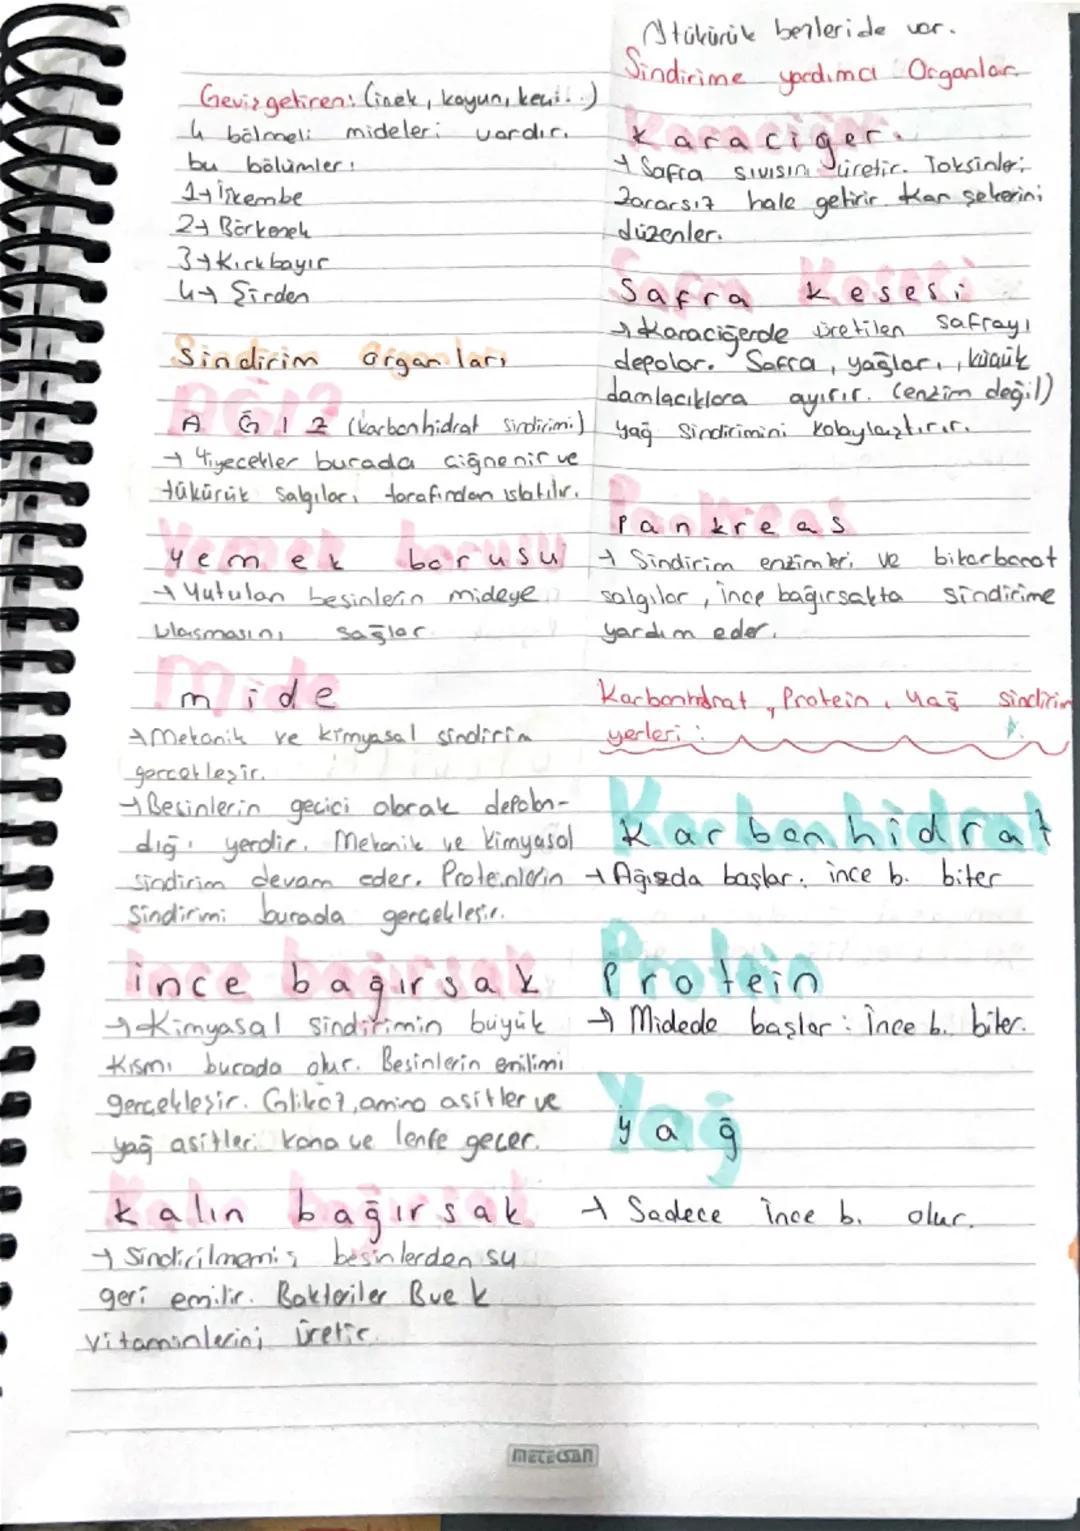 Geviş getiren: (inek, koyun, keçi..)
4 bölmeli mideleri vardır.
bu bölümler:
1→ İşkembe
2→ Börkenek
3→ Kırkbayır
4→ Şirden
Sindirim organları
AĞIZ (karbonhidrat sindirimi)
→ Yiyecekler burada çiğnenir ve
tükürük salgıları tarafından ıslatılır.
yemek borusu
→ Yutulan besinlerin mideye
ulaşmasını sağlar.
mide
→ Mekanik ve kimyasal sindirim
gerçekleşir.
→ Besinlerin geçici olarak depolan-
dığı yerdir. Mekanik ve kimyasal
sindirim devam eder. Proteinlerin
Sindirimi burada gerçekleşir.
ince bağırsak
→ Kimyasal sindirimin büyük
kısmı burada olur. Besinlerin emilimi
gerçekleşir. Glikoz, amino asitler ve
yağ asitleri kana ve lenfe geçer.
kalın bağırsak
→ Sindirilmemiş besinlerden su
geri emilir. Bakteriler B ve k
vitaminlerini üretir.
tükürük bezleride var.
Sindirime yardımcı Organlar
karaciğer.
→ Safra sıvısını üretir. Toksinleri
zararsız hale getirir. Kan şekerini
düzenler.
Safra kesesi
→ Karaciğerde üretilen safrayı
depolar. Safra, yağları, küçük
damlacıklara ayırır. (enzim değil)
yağ sindirimini kolaylaştırır.
pankreas
→ Sindirim enzimleri ve bikarbonat
salgılar, ince bağırsakta sindirime
yardım eder.
Karbonhidrat, Protein, Yağ sindirim
yerleri:
karbonhidrat
→ Ağızda başlar: ince b. biter
protein
→ Midede başlar: İnce b. biter.
yağ
→ Sadece İnce b. olur.